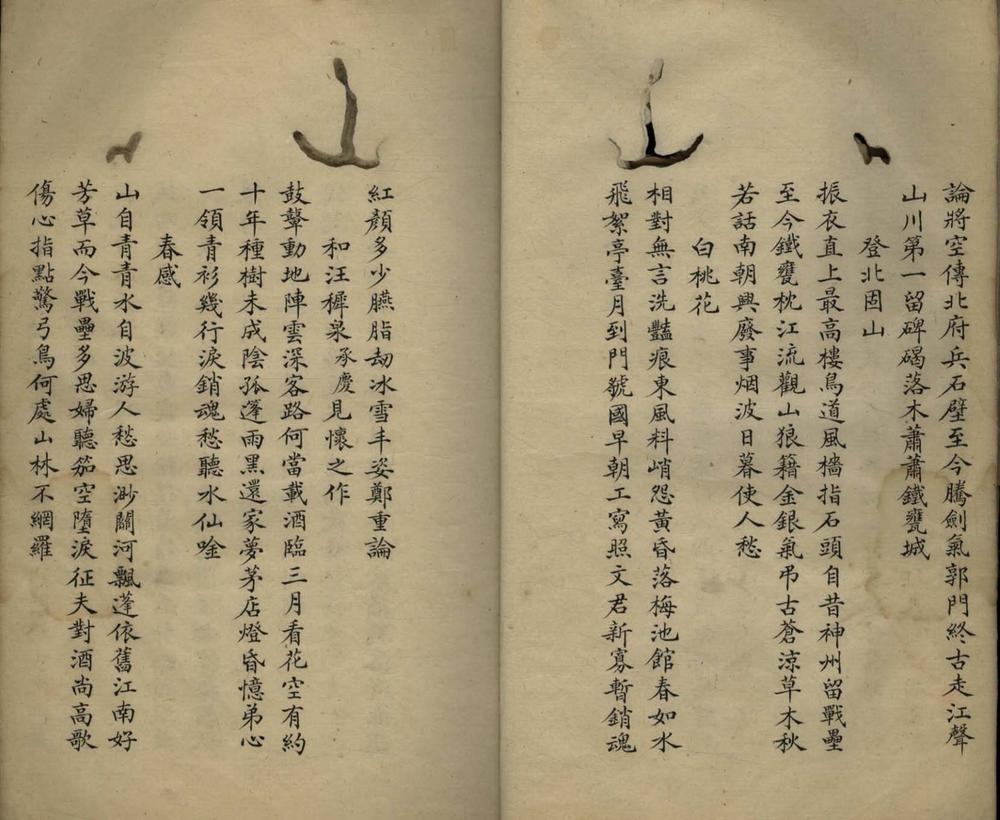 論將空傳北府兵石壁至今騰劍氣郭門終古走江聲
山川第一留碑碣落木蕭蕭鐵甕城
登北固山
振衣直上最高樓鳥道風檣指石頭自昔神州留戰壘
至今鐵甕枕江流觀山狼籍金銀氣弔古蒼涼草木秋
若話南朝興廢事烟波日暮使人愁
白桃花
相對無言洗豔痕東風料峭怨黃昏落梅池館春如水
飛絮亭臺月到門虢國早朝工寫照文君新寡暫銷魂
紅顏多少臙脂劫冰雪丰姿鄭重論
和汪樨泉承慶見懷之作
鼓鼙動地陣雲深客路何當載酒臨三月看花空有約
十年種樹未成陰孤蓬雨黑還家夢茅店燈昏憶弟心
一領青衫幾行淚銷魂愁聽水仙唫
春感
山自青青水自波游人愁思渺關河飄蓬依舊江南好
芳草而今戰壘多思婦聽笳空墮淚征夫對酒尚高歌
傷心指點驚弓鳥何處山林不網羅